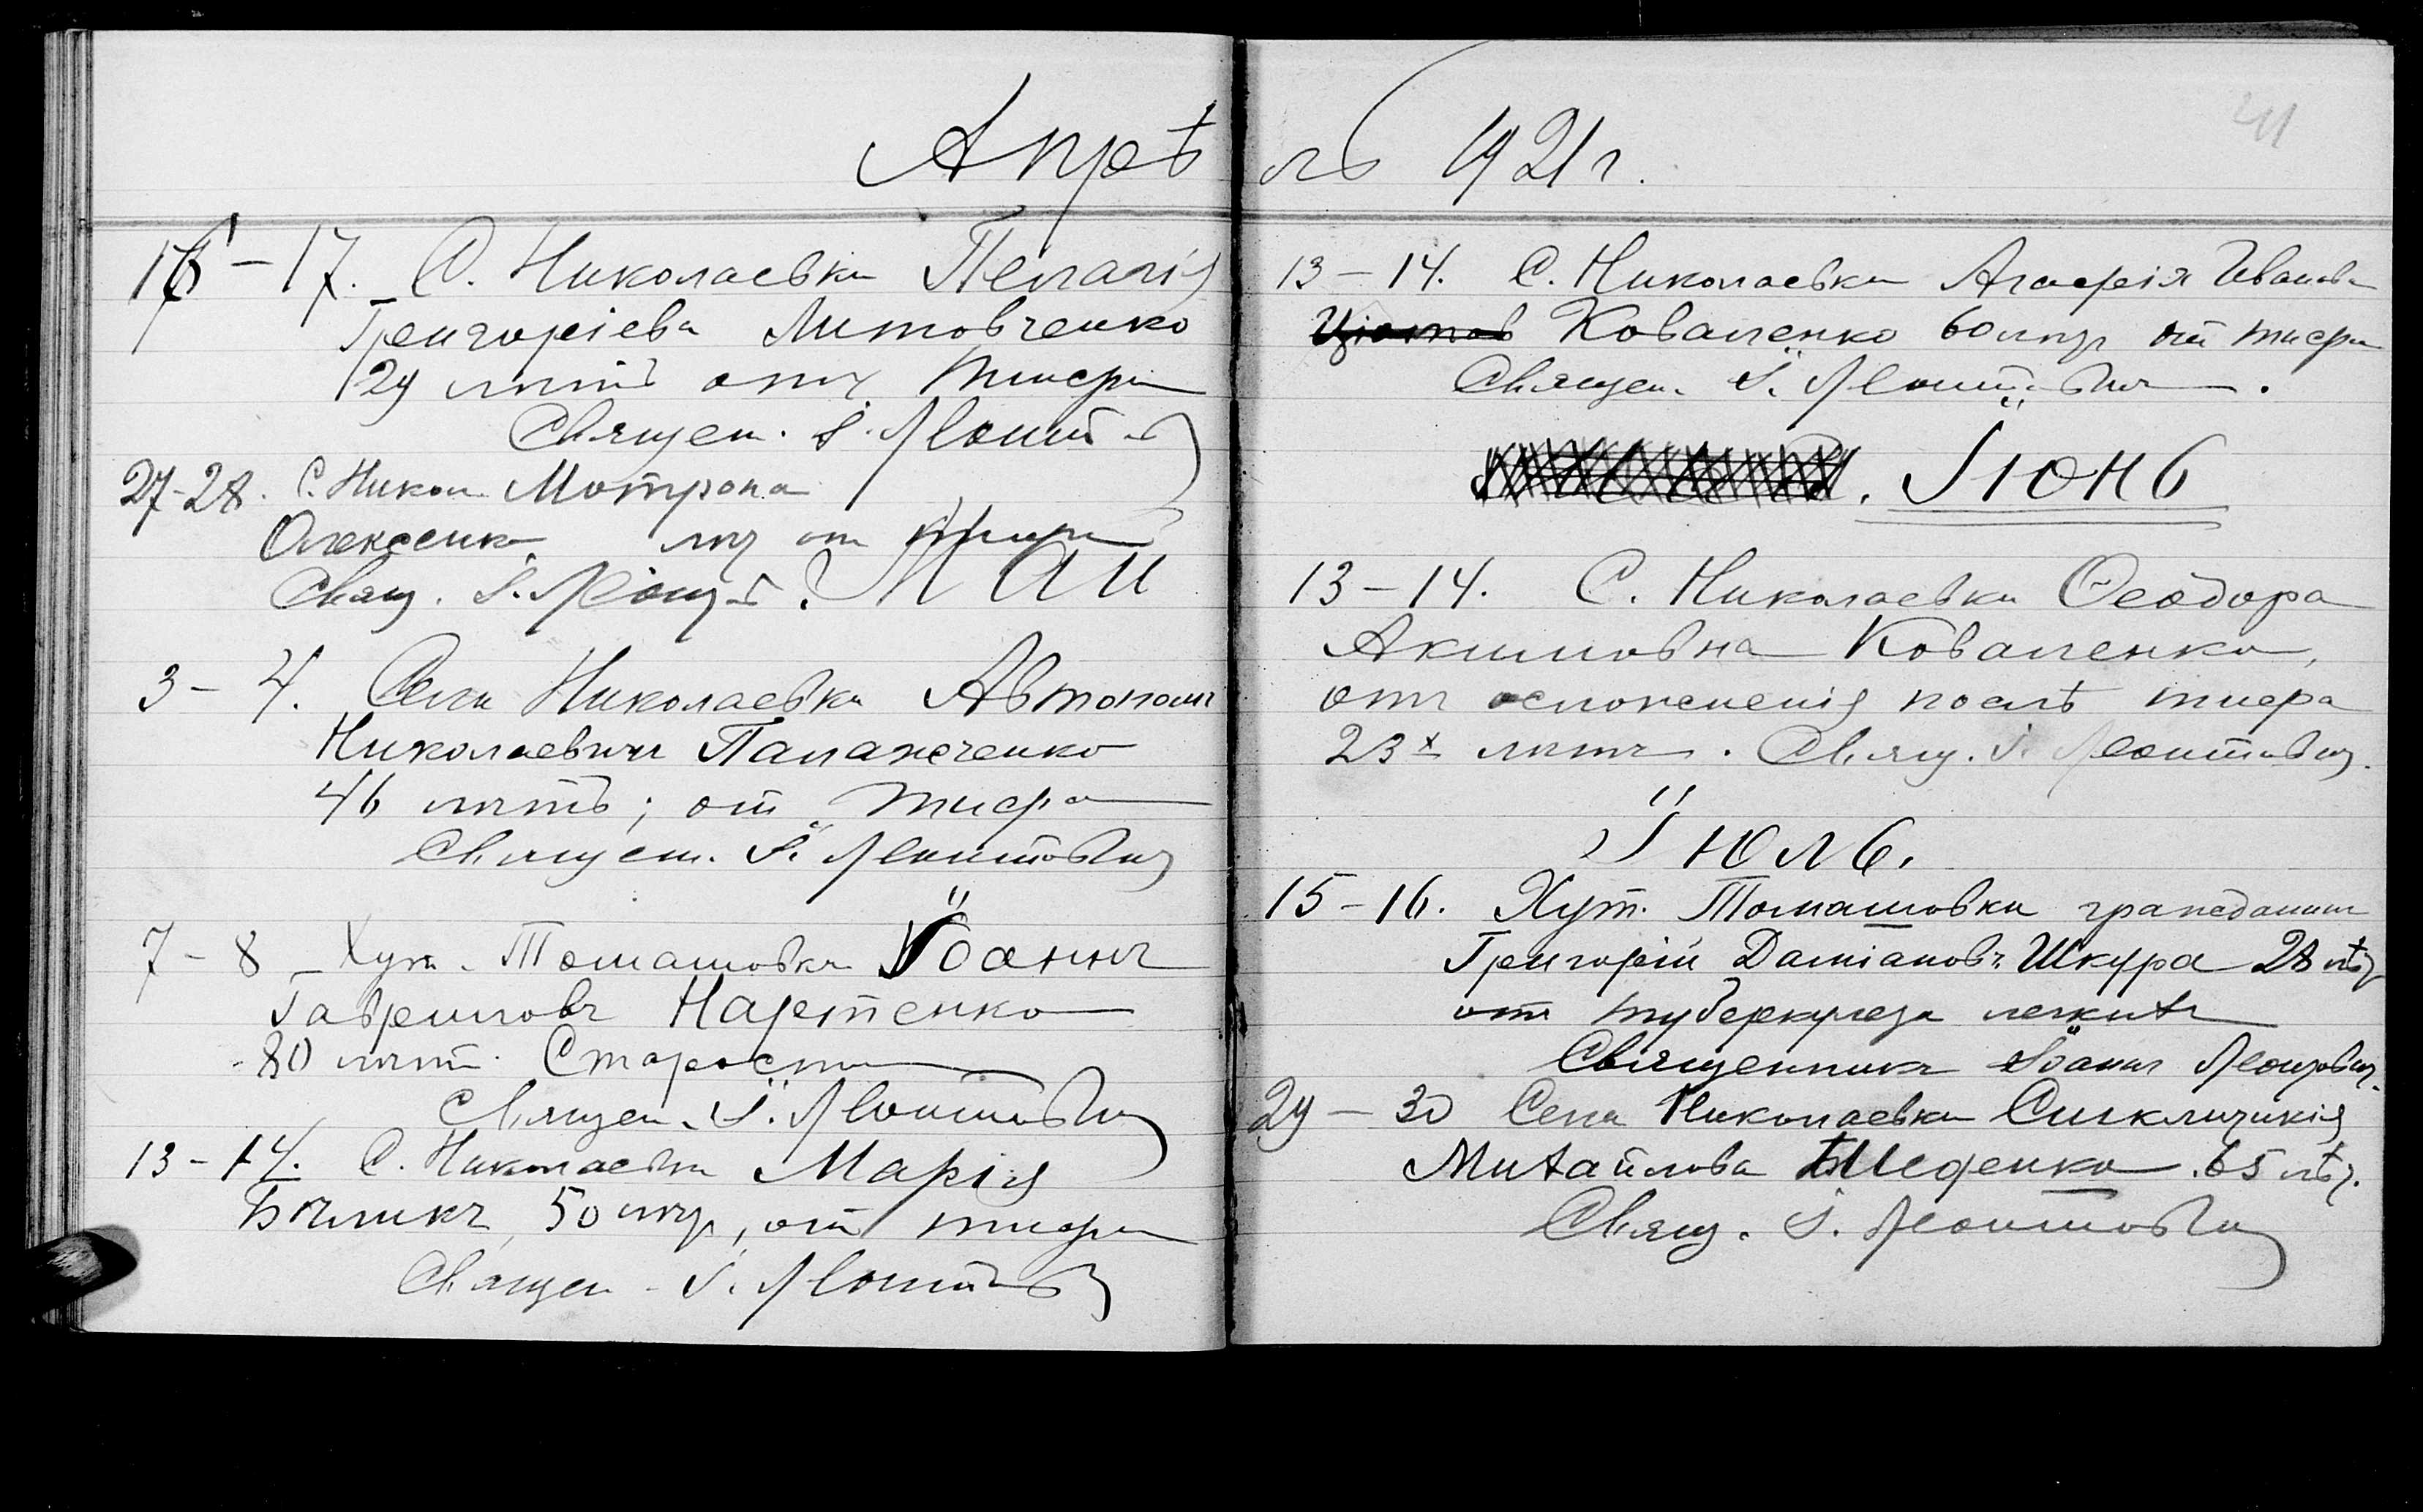 Апрѣль 1921 г.
41
16-17. С. Николаевки Пелагія
Григоріева Литовченко
29 лѣтъ отъ тифа
Священ. І. Леонт
27-28. С. Никол. Мотрона
Олексенко лѣт от тифа
Свящ. І. Леонт.
Май
3-4. Села Николаевки Автономъ
Николаевичъ Папанченко
46 лѣтъ; от тифа
Священ. І. Леонтович
7-8 Хут. Томашовки Іоаннъ
Гавриловъ
80 лѣт. Старости
Священ. І. Леонтович
13-14. С. Николаевки Марія
Бѣликъ, 50 лѣт, от тифа
Священ. І. Леонтов
13-14. С. Николаевки Агафія Иванова
Коваленко 60 лѣт от тифа
Священ. І. Леонтович.
Іюнь
13-14. С. Николаевки Ѳеодора
Акимовна Коваленко,
отъ осложненія послѣ тифа
23х лѣтъ. Свящ. І. Леонтович.
Іюль.
15-16. Хут. Томашовки гражданинъ
Григорій Даміановъ Шкура 28 лѣт
отъ туберкулеза легкихъ
Священникъ Іоаннъ Леонтович.
29-30 Села Николаевки Синклитикія
Михайлова 65 лѣт.
Свящ. І. Леонтович